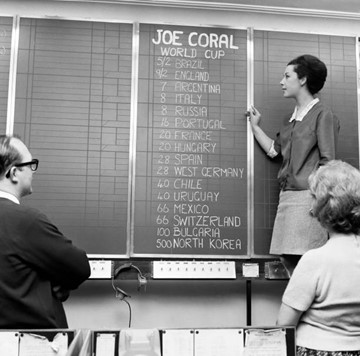 JOE CORAL
WORLD CUP
5/2 BRAZIL
9/2 ENGLAND
7 ARGENTINA
8 ITALY
8 RUSSIA
16 PORTUGAL
20 FRANCE
20 HUNGARY
28 SPAIN
28 WEST GERMANY
40 CHILE
40 URUGUAY
66 MEXICO
66 SWITZERLAND
100 BULGARIA
500 NORTH KOREA